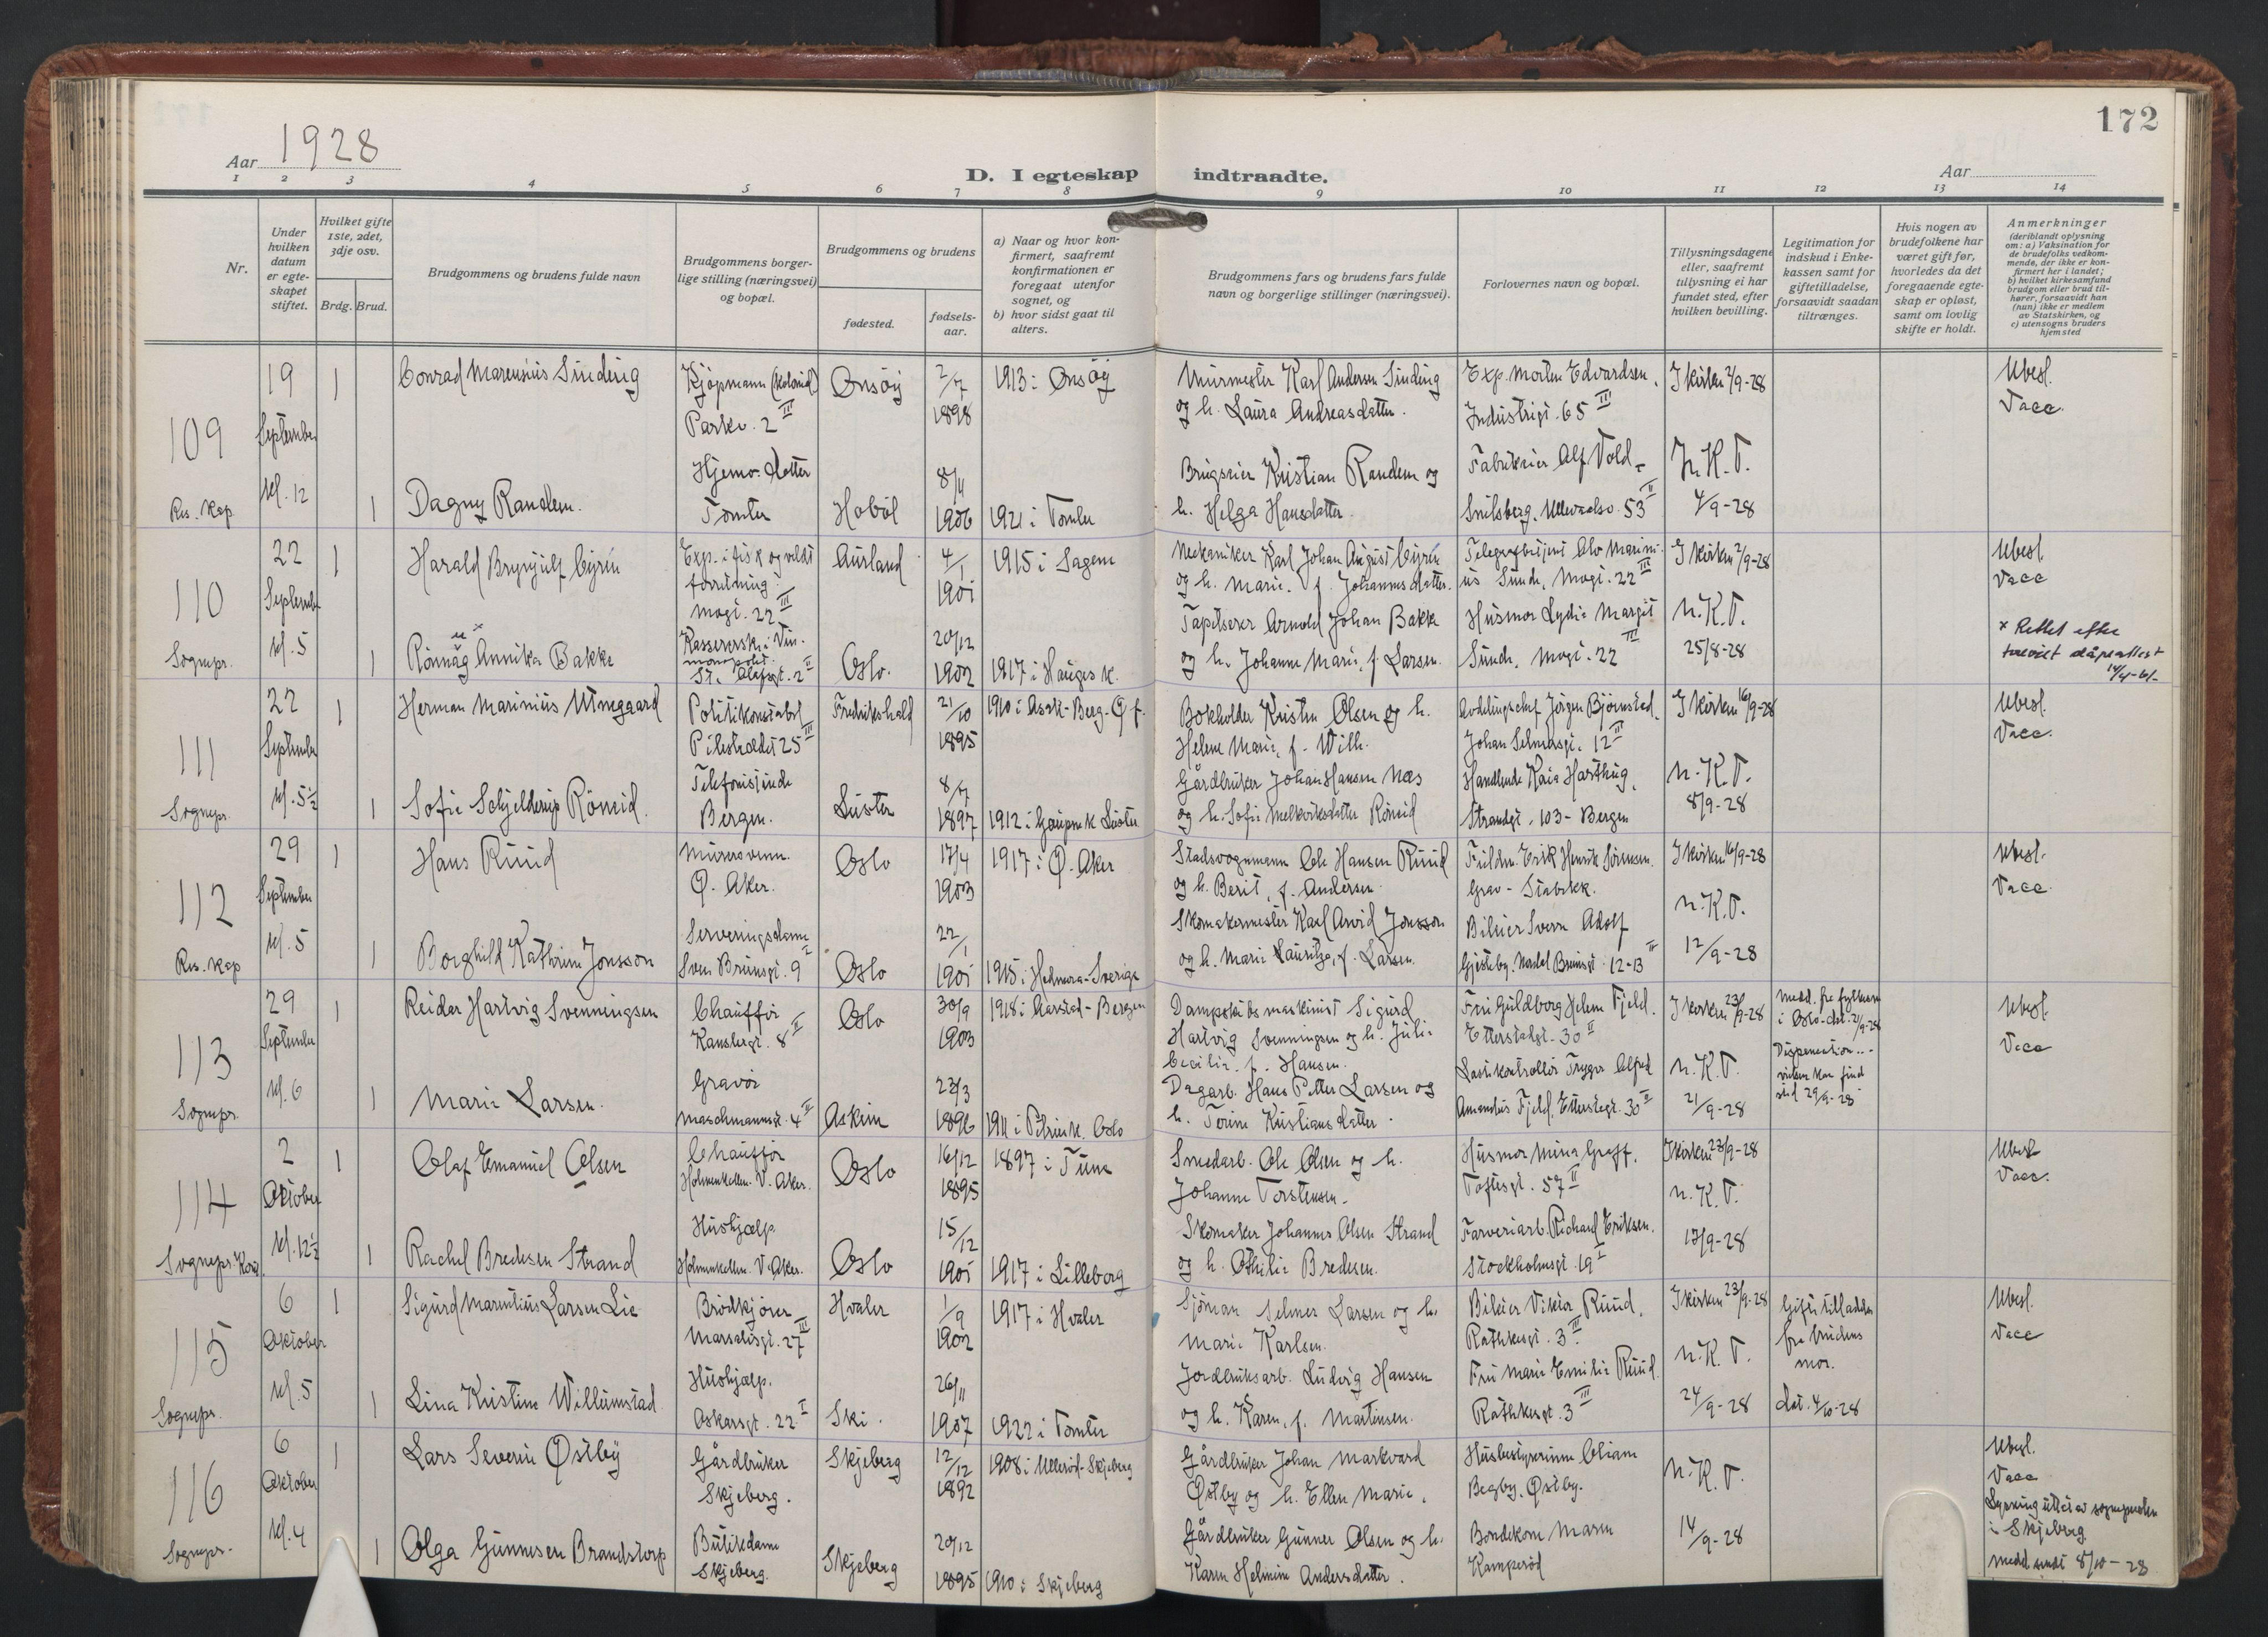 172
Aar 1928
D. I egteskap indtraadte.
Aar
1 2 3 4 5 6 7 8 9 10 11 12 13 14
Nr.
Under
hvilken
datum
er egte-
skapet
stiftet.
Hvilket gifte
1ste, 2det,
3dje osv.
Brdg. Brud.
Brudgommens og brudens fulde navn
Brudgommens borger-
lige stilling (næringsvei)
og bopæl.
Brudgommens og brudens
fødested.
fødsels-
aar.
a) Naar og hvor kon-
firmert, saafremt
konfirmationen er
foregaat utenfor
sognet, og
b) hvor sidst gaat til
alters.
Brudgommens fars og brudens fars fulde
navn og borgerlige stillinger (næringsvei).
Forlovernes navn og bopæl.
Tillysningsdagene
eller, saafremt
tillysning ei har
fundet sted, efter
hvilken bevilling.
Legitimation for
indskud i Enke-
kassen samt for
giftetilladelse,
forsaavidt saadan
tiltrænges.
Hvis nogen av
brudefolkene har
været gift før,
hvorledes da det
foregaaende egte-
skap er opløst,
samt om lovlig
skifte er holdt.
Anmerkninger
(deriblandt oplysning
om: a) Vaksination for
de brudefolks vedkom-
mende, der ikke er kon-
firmert her i landet;
b) hvilket kirkesamfund
brudgom eller brud til-
hører, forsaavidt han
(hun) ikke er medlem
av Statskirken, og
c) utensogns bruders
hjemsted
109
Res. Kap
19
September
kl. 12
1
Conrad Marensius Sinding
Kjøpmann (kolonial)
Parkv. 2 III
Onsøy
2/7
1898
1913 i Onsøy
Murmester Karl Andersen Sinding
og h. Laura Andreasdatter.
Exp. Morten Edvardsen,
Industrigt. 65 III
I kirken 2/9-28
Ubesl.
Vacc.
1
Dagny Randem.
Hjemv. datter
Tomter
Hobøl
8/4
1906
1921 i Tomter
Brugseier Kristian Randem og
h. Helga Hansdatter.
Fabrikeier Alf Vold-
Snilsberg, Ullevaalsv. 53 II
N.K.T.
4/9-28
110
Sognepr.
22
September
kl. 5
1
Harald Brynjulf Cyrén
Exp. i fisk og vildt
forretning
Mogt. 22 III
Aurland
4/1
1901
1915 i Sagene
Mekaniker Karl Johan August Cyrén
og h. Marie, f. Johannesdatter.
Telegrafbetjent Olv Marini-
us Sunde, Mogt. 22 III
I kirken 2/9-28
Ubesl
Vacc
1
Rönnäg Annika Bakke
Kassererske i Vin-
monopolet.
St. Olafsgt. 2 II
Oslo.
20/12
1902
1917 i Hauges k.
Tapetserer Arnold Johan Bakke
og h. Johanne Marie, f. Larsen.
Husmor Lydia Margit
Sunde, Mogt. 22 III
N.K.T.
25/8-28
x Rettet efter
dåpsattest
14/4-61-
111
Sognepr.
22
September
kl. 5½
1
Herman Marinius Utnegaard
Politikonstabel
Pilestrædet 25 III
Fredrikshald
21/10
1895
1910 i Asak-Berg-Ø f.
Bokholder Kristen Olsen og h.
Helene Marie, f. Wilh.
Avdelingschef Jörgen Björnstad,
Johan Selmersgt. 12 III
I kirken 16/9-28
Ubesl.
Vacc.
1
Sofie Schjelderup Röneid.
Telefonistinde
Bergen.
Luster
8/7
1897
1912 i Gaupne k Luster
Gårdbruker Johan Hansen Næs
og h. Sofie Melkeriksdatter Röneid
Handlende Kaia Harthug,
Strandgt. 103 - Bergen
N.K.T.
8/9-28
112
Res. Kap
29
September
kl. 5
1
Hans Ruud
Murersvenn.
Ø. Aker.
Oslo
17/4
1903
1917 i Ø. Aker
Stadsvognmann Ole Hansen Ruud
og h. Berit, f. Andersen.
Fuldm. Erik Henrik Sörensen.
Grav - Stabekk.
I kirken 16/9-28
Ubesl.
Vacc.
1
Borghild Kathrine Jonsson
Serveringsdame
Sven Brunsgt. 9 I
Oslo
22/1
1901
1915 i Hedmora-Sverige
Skomakermester Karl Arvid Jonsson
og h. Marie Lauritza, f. Larsen.
Bileier Svern Adolf
Gjesteby, Nordal Brunsgt. 12-13 II
N.K.T.
12/9-28
113
Sognepr.
29
September
kl. 6
1
Reidar Hartvig Svenningsen
Chauffør
Kanslergt. 8 II
Oslo
30/9
1903
1918 i Aarstad-Bergen
Dampskibsmaskinist Sigurd
Hartvig Svenningsen og h. Julie
Cecilie, f. Hansen.
Fru Guldborg Helene Fjeld.
Etterstadgt. 30 II
I kirken 23/9-28
Medd. fra fylkesm
i Oslo-dat. 21/9-28
Dispensation..-
Ubesl.
Vacc
1
Marie Larsen.
Gravör
Maschmannsgt. 4 II
Askim
23/3
1896
1911 i Petrus k. Oslo
Dagarb. Hans Petter Larsen og
h. Terine Kristiansdatter.
Lastekontrollör Trygve Alfred
Amandus Fjeld, Etterstgt. 30 II
N.K.T.
21/9-28
114
Sognepr.
2
Oktober
kl. 12½
1
Olaf Emanuel Olsen
Chauffør
Holmenkollen. V. Aker.
Oslo
16/12
1895
1897 i Tune
Smedarb. Ole Olsen og h.
Johanne Torstensen.
Husmor Mina Graff,
Toftesgt. 57 II
I kirken 23/9-28
Ubesl.
Vacc.
1
Rachel Bredesen Strand
Hushjælp
Holmenkollen. V. Aker.
Oslo
15/12
1901
1917 i Lilleborg
Skomaker Johannes Olsen Strand
og h. Othilie Bredesen.
Farveriarb. Richard Eriksen.
Stockholmsgt. 19 I
N.K.T.
17/9-28
115
Sognepr.
6
Oktober
kl. 5
1
Sigurd Marentius Larsen Lie
Brödkjörer
Marselisgt. 27 III
Hvaler
1/9
1902
1917 i Hvaler
Sjöman Selmer Larsen og h.
Marie Karlsen.
Bileier Viktor Ruud,
Rathkesgt. 3 III
I kirken 23/9-28
Giftetilladelse
fra brudens
mor.
dat. 4/10-28
Ubesl.
Vacc
1
Lina Kristine Willumstad
Hushjælp.
Oskarsgt. 22 I
Ski.
26/11
1907
1922 i Tomter
Jordbruksarb. Ludvig Hansen
og h. Karen, f. Martinsen.
Fru Marie Emilie Ruud.
Rathkesgt. 3 III
N.K.T.
24/9-28
116
Sognepr.
6
Oktober
kl. 4
1
Lars Severin Østby
Gårdbruker
Skjeberg.
Skjeberg
12/12
1892
1908 i Ulleröd-Skjeberg
Gårdbruker Johan Markvard
Østby og h. Ellen Marie.
Husbestyrerinne
Begby, Østby.
N.K.T.
14/9-28
Ubesl.
Vacc
Lysning av sognepresten
i Skjeberg
medd. sendt 8/10-28
1
Olga Gunnesen Brandstorp
Butikdame
Skjeberg.
Skjeberg
20/12
1895
1910 i Skjeberg
Gårdbruker Gunner Olsen og h.
Karen Helmine Andersdatter.
Bondekone Maren
Kamperöd